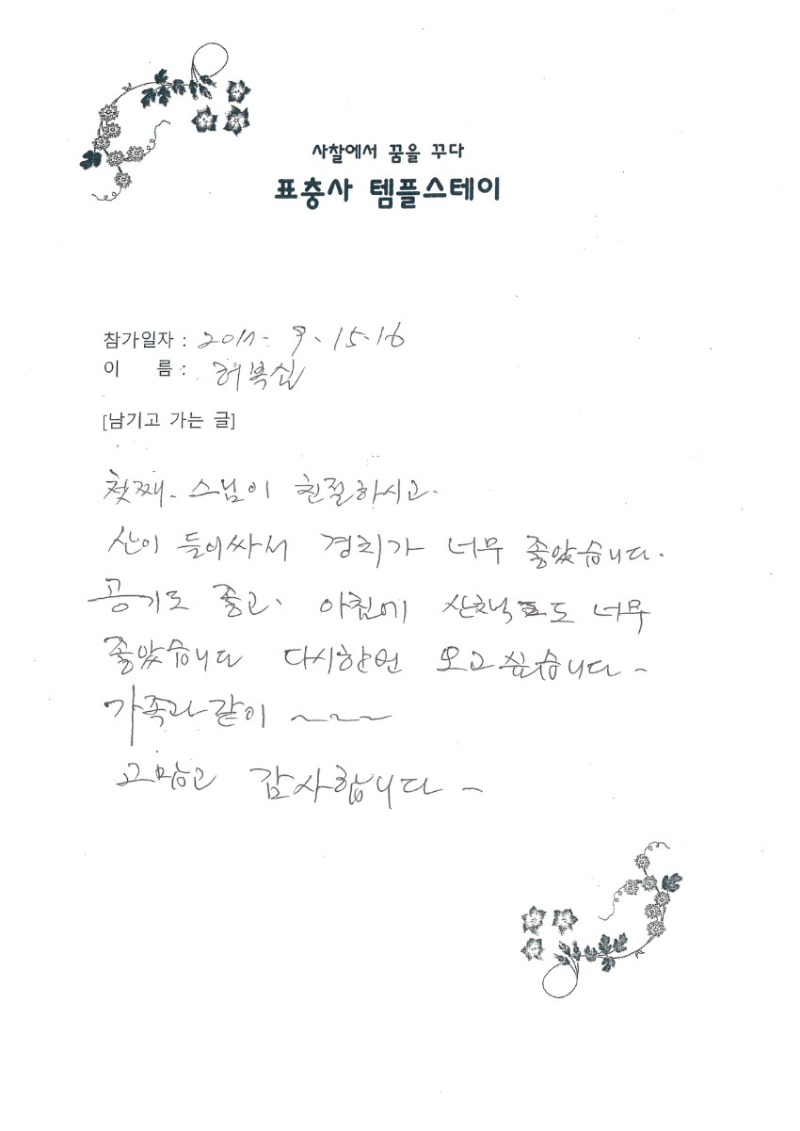 사찰에서 꿈을 꾸다
표충사 템플스테이
참가일자 : 2011. 9. 15.16
이 름 : 허복심
[남기고 가는 글]
첫째. 스님이 친절하시고.
산이 들이싸서 경치가 너무 좋았습니다.
공기도 좋고. 아침에 산책도 너무
좋았습니다 다시한번 오고싶습니다 ~
가족과 같이 ~~~
고맙고 감사합니다 ~